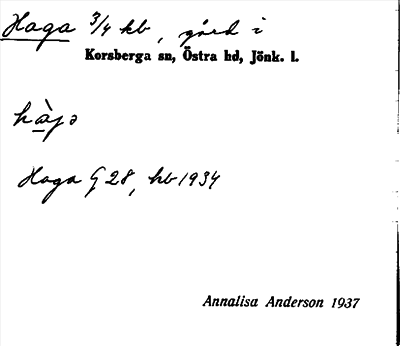 Haga 3/4 hb, gård i
Korsberga sn, Östra hd, Jönk. l.
Haga G 28, hb 1934
Annalisa Anderson 1937